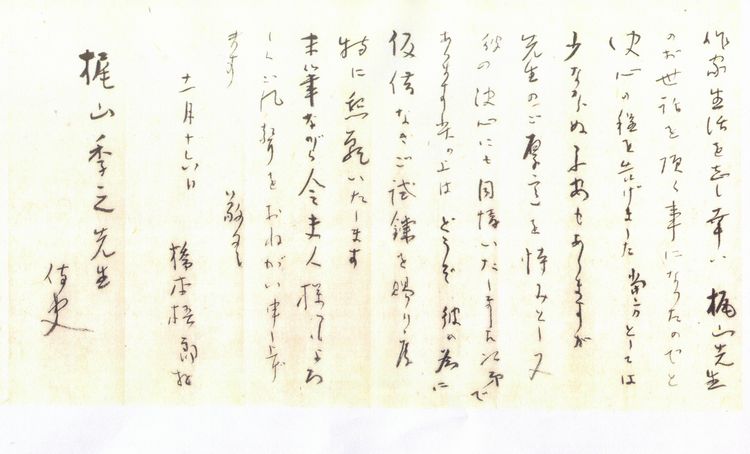 作家生活を志し幸い 梶山先生
のお世話を頂く事になったのでと
決心の程を告げました 当方としては
少なからぬ不安もありますが
先生のご厚意を恃みとし又
彼の決心にも同情いたしました次第で
あります 此の上は どうぞ 彼の為に
仮借なきご試錬を賜り度
特に懇願いたします
末筆ながら令夫人様によろ
しくご鳳声をおねがい申し上げ
ます
敬具
十一月十六日
橋本
梶山季之先生
侍史